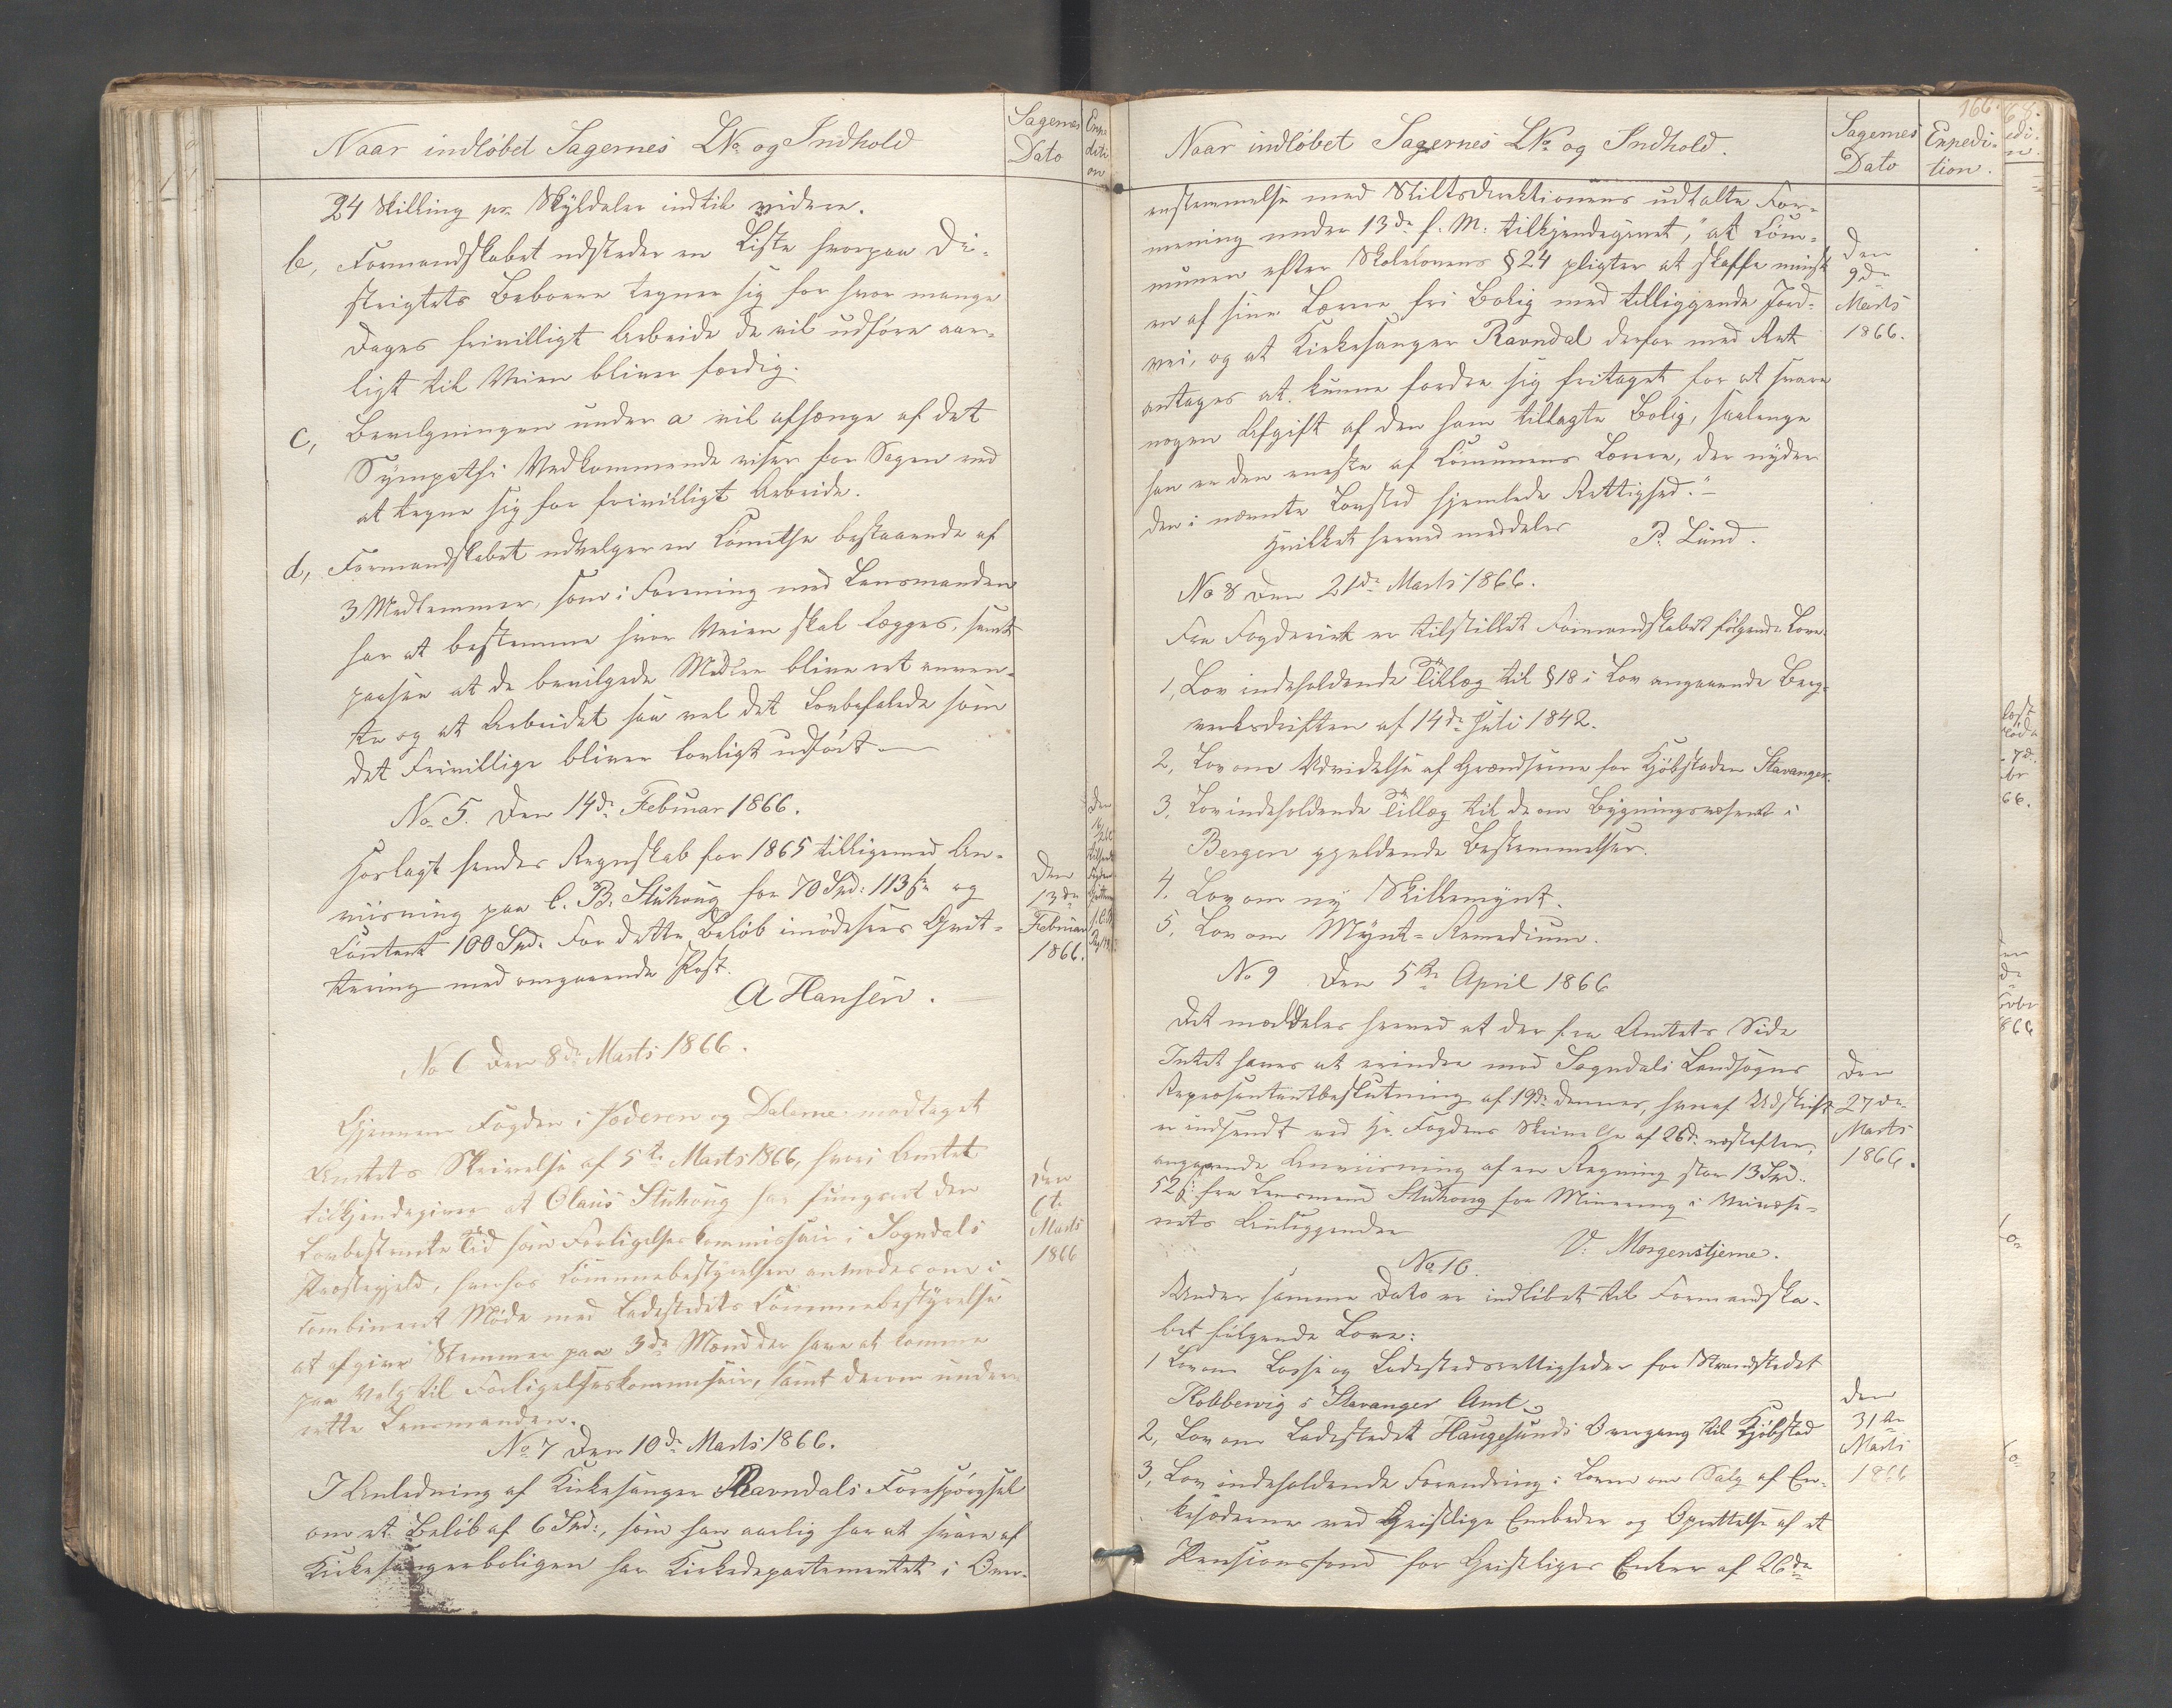 Naar indløbet Sagernes LNo og Indhold
Sagernes Dato
Expedition
24 Skilling pr. Skyldaler indtil videre.
b, Formandskabet udsteder en Liste hvorpaa Di-
strigtets Beboere tegner sig for hvor mange
Dages frivilligt Arbeide de vil udføre aar-
ligt til Veien bliver færdig.
c, Bevilgningen under a vil afhænge af det
Sympathi Vedkommende viser for Sagen ved
at tegne sig for frivilligt Arbeide.
d, Formandskabet udvælger en Comithe bestaaende af
3 Medlemmer, som i Forening med Lensmanden
har at bestemme hvor Veien skal lægges, samt
paasee at de bevilgede Midler blive ret anven-
te og at Arbeidet saa vel det Lovbefalede som
det Frivillige bliver lovligt udført
No 5. Den 14de Februar 1866.
Hoslagt sendes Regnskab for 1865 tilligemed An-
viisning paa C. B. Stuhoug for 70 Spd: 113 s og
Contant 100 Spd. For dette Beløb imødesees Qvit-
tering med omgaaende Post.
A Hansen.
Den
13de
Februar
1866.
No 6 Den 8de Marts 1866.
Gjennem Fogden i Jæderen og Dalerne modtaget
Amtets Skrivelse af 5te Marts 1866, hvori Amtet
tilkjendegiver at Olaus Stuhoug har fungeret den
Lovbestemte Tid som Forligelseskommissair i Sogndals
Præstegjeld, hvorfor Communebestyrelsen anmodes om i
combineret Møde med Ladestedets Communebestyrelse
at afgive Stemmer paa 3de Mænd der have at komme
paa Valg til Forligelseskommissair, samt derom under-
rette Lensmanden.
Den
6te
Marts
1866
No 7 Den 10de Marts 1866.
I Anledning af Kirkesanger Ravndals Forespørgsel
om et Beløb af 6 Spd:, som han aarlig har at svare af
Kirkesangerboligen har Kirkedepartementet i Over-
166.
Naar indløbet Sagernes LNo og Indhold.
Sagernes Dato
Expedition.
ensstemmelse med Stiftsdirektionens udtalte For-
mening under 13de f. M: tilkjendegivet, "at Com-
munen efter Skolelovens §24 pligter at skaffe mindst
en af sine Lærere fri Bolig med tilliggende Jord-
vei, og at Kirkesanger Ravndal derfor med Ret
antages at kunne fordre sig fritaget for at svare
nogen Afgift af den ham tillagte Bolig, saalenge
han er den eneste af Communens Lærere, der nyder
den i nævnte Lovsted hjemlede Rettighed."
Hvilket herved meddeles
P. Lund.
Den
9de
Marts
1866.
No 8 Den 21de Marts 1866.
Fra Fogderiet er tilstillet Formandskabet følgende Love.
1, Lov indeholdende Tillæg til §18 i Lov angaaende Berg-
verksdriften af 14de Juli 1842.
2, Lov om Udvidelse af Grændserne for Kjøbstaden Stavanger.
3, Lov indeholdende Tillæg til de om Bygningsvæsenet i
Bergen gjeldende Bestemmelser.
4. Lov om ny Skillemynt.
5. Lov om Mynt-Remedium.
No 9 Den 5te April 1866
Det meddeles herved at der fra Amtets Side
Intet haves at erindre mod Sogndals Landsogns
Repræsentantbeslutning af 19de dennes, hvoraf Udskrift
er indsendt ved Hr. Fogdens Skrivelse af 26de næstefter,
angaaende Anviisning af en Regning stor 13 Spd.
52 s: fra Lensmand Stuhoug for Minering i Veivæse-
nets Anliggender
V. Morgenstjerne.
Den
27de
Marts
1866.
No 10.
Under samme Dato er indløbet til Formandska-
bet følgende Love:
1 Lov om Losse og Ladestedsrettigheder for Strandstedet
Kobbervig i Stavanger Amt
2, Lov om Ladestedet Haugesunds Overgang til Kjøbstad
3, Lov indeholdende Forandring i Loven om Salg af En-
kesæderne ved Geistlige Embeder og Oprettelse af et
Pensionsfond for Geistliges Enker af 26de
Den
31te
Marts
1866